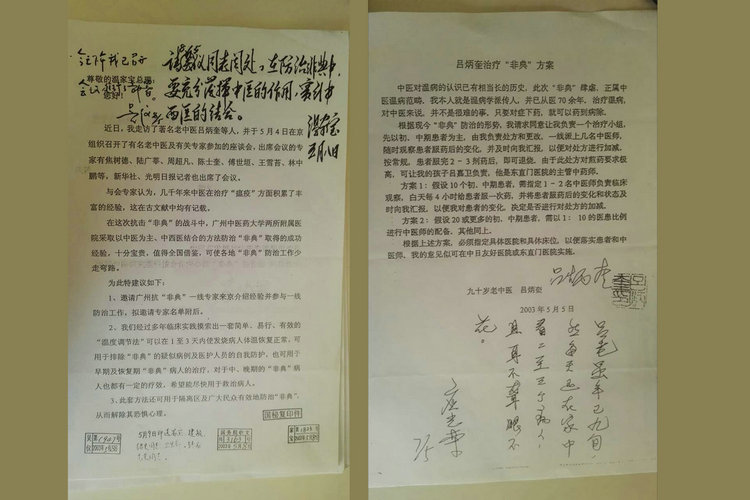 请仪同志阅处。在防治非典中，
要充分发挥中医的作用，实行中
西医的结合。
温家宝
五月八日
尊敬的温家宝总理：
您好！
近日，我走访了著名老中医吕炳奎等人，并于5月4日在京
组织召开了有名老中医及有关专家参加的座谈会，出席会议的专
家有焦树德、陆广莘、周超凡、陈士奎、傅世垣、王雪苔、林中
鹏等，新华社、光明日报记者也出席了会议。
与会专家认为，几千年来中医在治疗“瘟疫”方面积累了丰
富的经验，这在古文献中均有记载。
在这次抗击“非典”的战斗中，广州中医药大学两所附属医
院采取以中医为主、中西医结合的方法防治“非典”取得的成功
经验，十分宝贵，值得全国借鉴，可使各地“非典”防治工作少
走弯路。
为此特建议如下：
1、邀请广州抗“非典”一线专家来京介绍经验并参与一线
防治工作。拟邀请专家名单附后。
2、我们经过多年临床实践摸索出一套简单、易行、有效的
“温度调节法”可以在1至3天内使发烧病人体温恢复正常，可
用于排除“非典”的疑似病例及医护人员的自我防护，也可用于
早期及恢复期“非典”病人的治疗，对于中、晚期的“非典”病
人也都有一定的疗效，希望能尽快用于救治病人。
3、此套方法还可用于隔离区及广大民众有效地防治“非典”，
从而解除其恐惧心理。
国秘复印件
吕炳奎治疗“非典”方案
中医对温病的认识已有相当长的历史，此次“非典”肆虐，正属中
医温病范畴，我本人就是温病学派传人，并已从医70余年，治疗温病，
对中医来说，并不是很难的事，只要对症下药，就可以药到病除。
根据现今“非典”防治的形势，我请求同意让我负责一个治疗小组，
先以初、中期患者为主，由我负责处方和更改，一线派上几名中医师，
随时观察患者服药后的变化，并及时向我汇报，以便对处方进行加减，
按常规，患者服完2－3剂药后，即可退烧。由于此处方对煎药要求极
高，可让我的孩子吕嘉卫负责，他是东直门医院的主管中药师。
方案1：假设10个初、中期患者，需指定1－2名中医师负责临床
观察，白天每4小时给患者服一次药，并将患者服药后的变化和状态及
时向我汇报，以便我对患者的变化，决定是否进行对处方的加减。
方案2：假设20或更多的初、中期患者，需以1：10的医患比例
进行中医师的配备，其他同上。
根据上述方案，必须指定具体医院和具体床位，以便落实患者和中
医师。我的意见似可在中日友好医院或东直门医院实施。
吕炳奎
九十岁老中医　吕炳奎
2003年5月5日
吕老虽年已九旬，
然每天还在家中
看二至三个病人，
且耳不聋眼不
花。